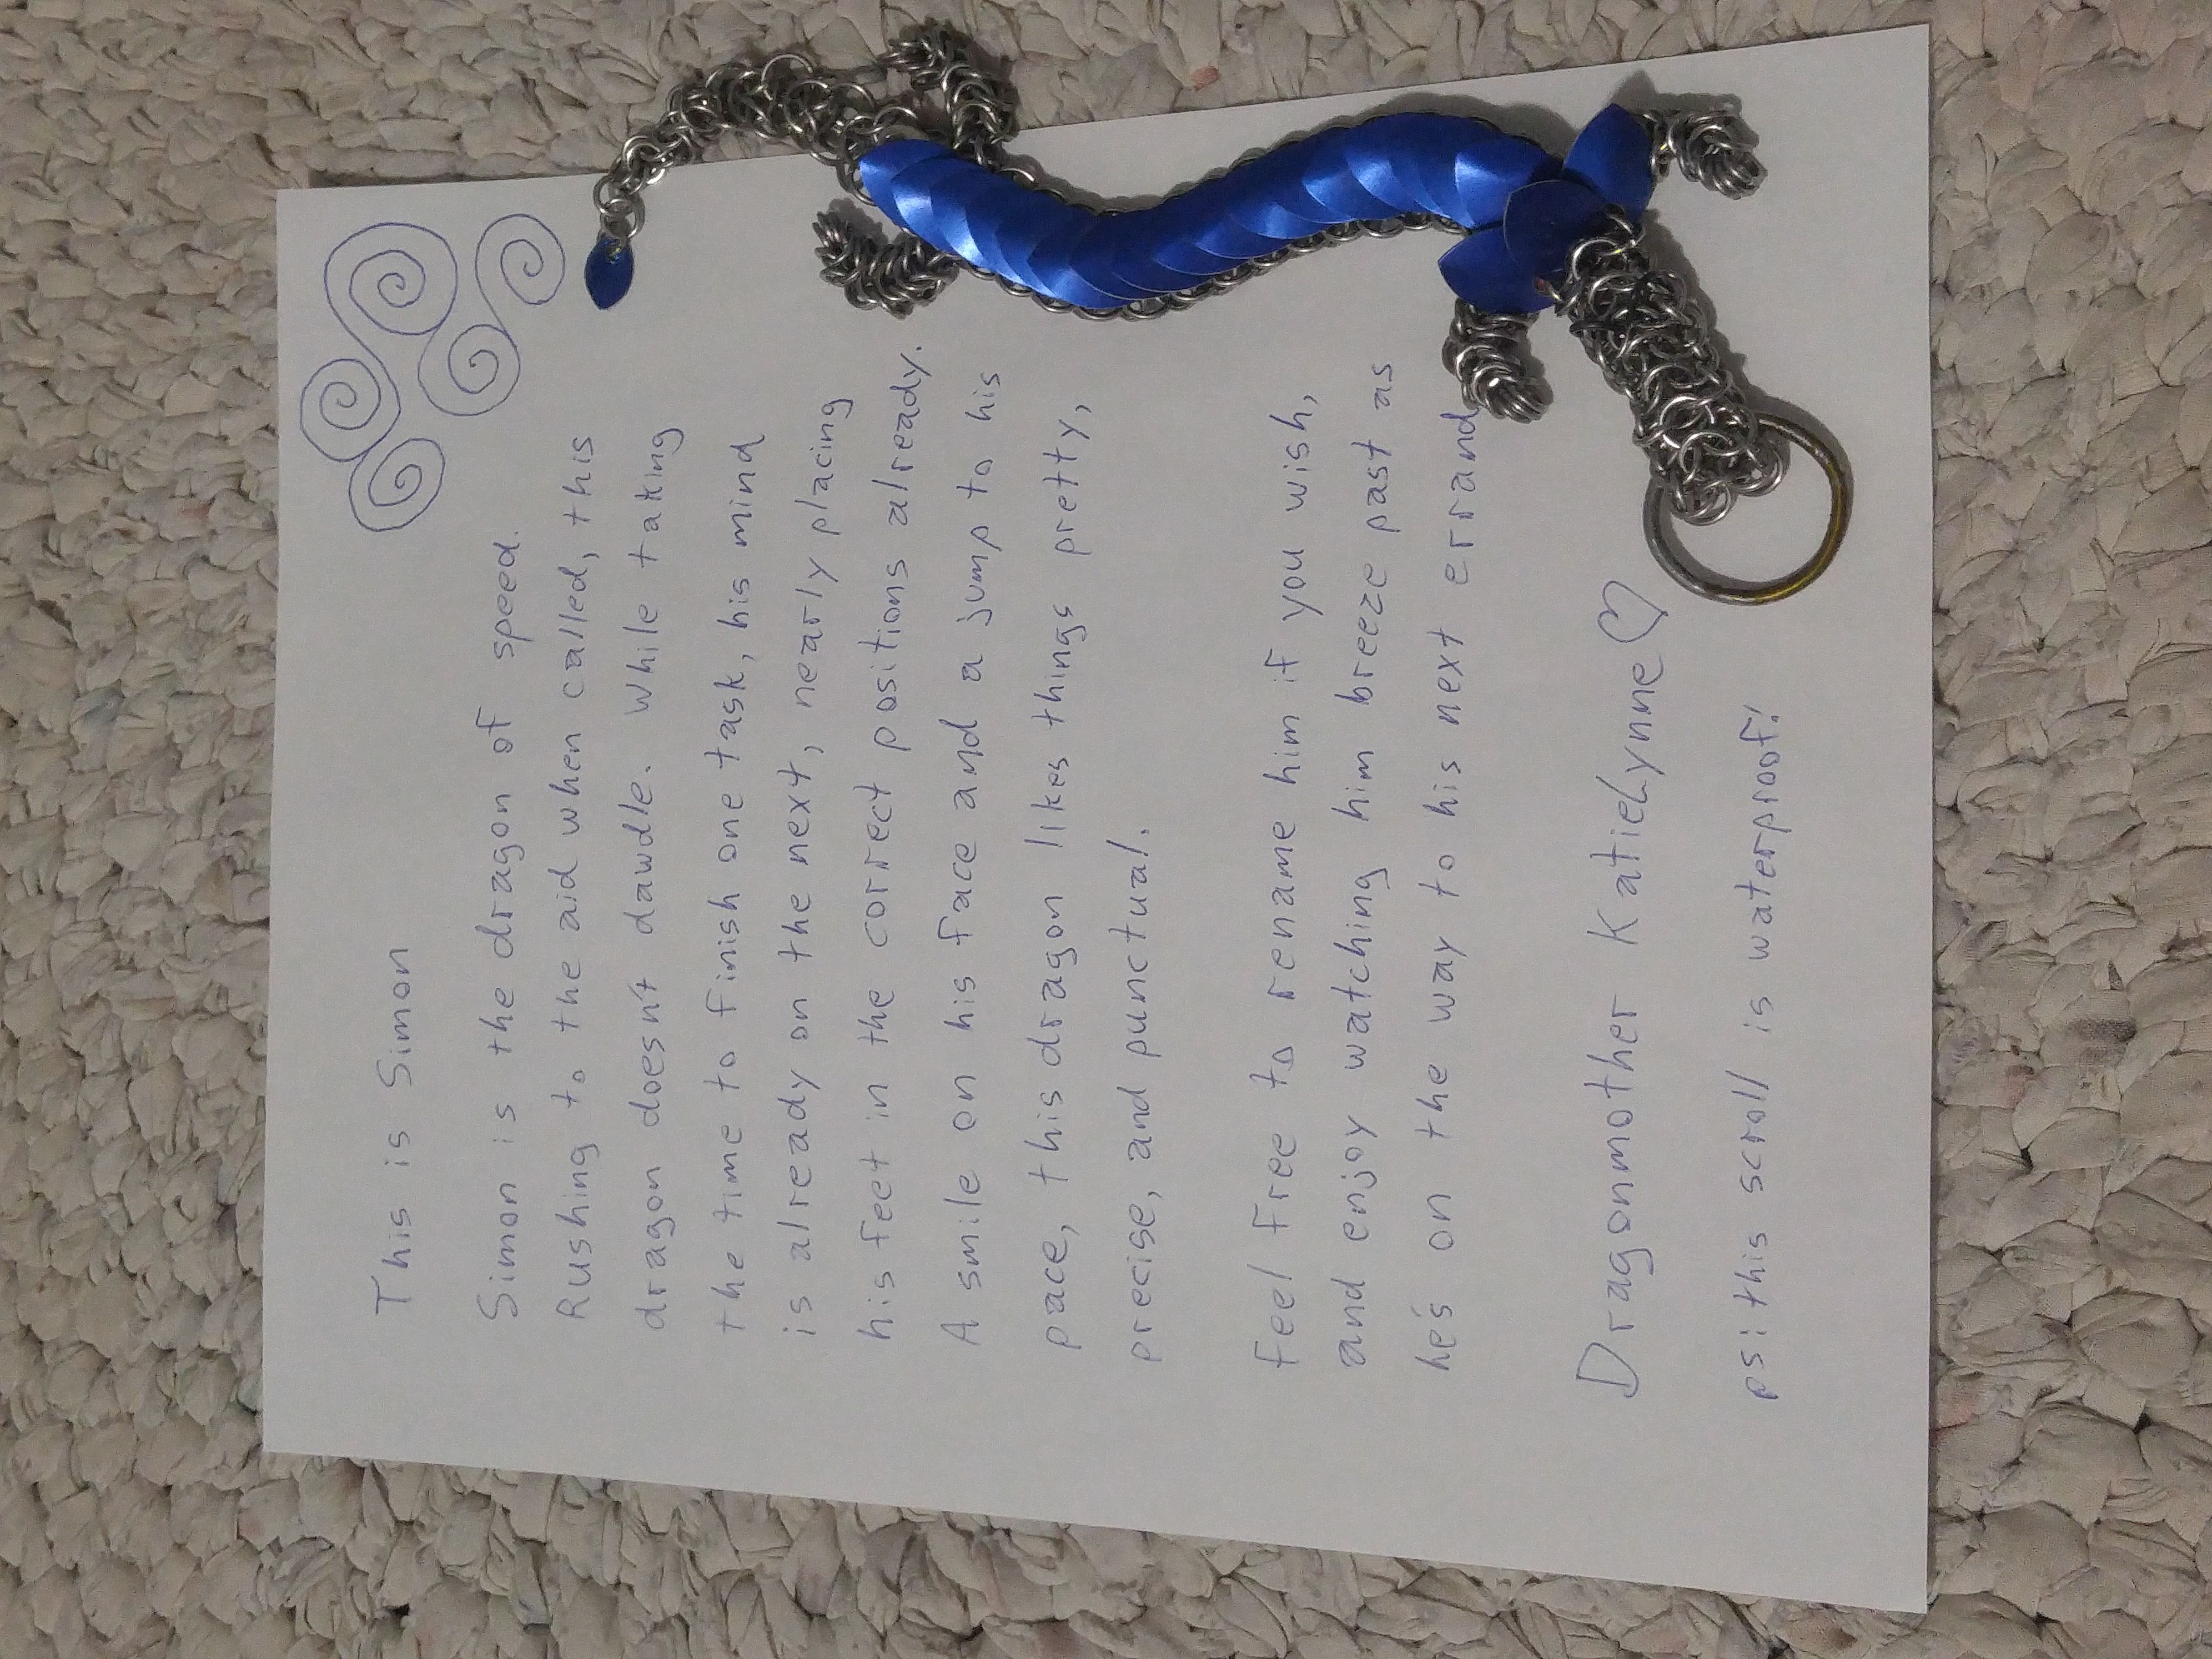 This is Simon
Simon is the dragon of speed.
Rushing to the aid when called, this
dragon doesn't dawdle. While taking
the time to finish one task, his mind
is already on the next, nearly placing
his feet in the correct positions already.
A smile on his face and a jump to his
pace, this dragon likes things pretty,
precise, and punctual.
Feel free to rename him if you wish,
and enjoy watching him breeze past as
he's on the way to his next errand
Dragonmother KatieLynne♡
ps: this scroll is waterproof!